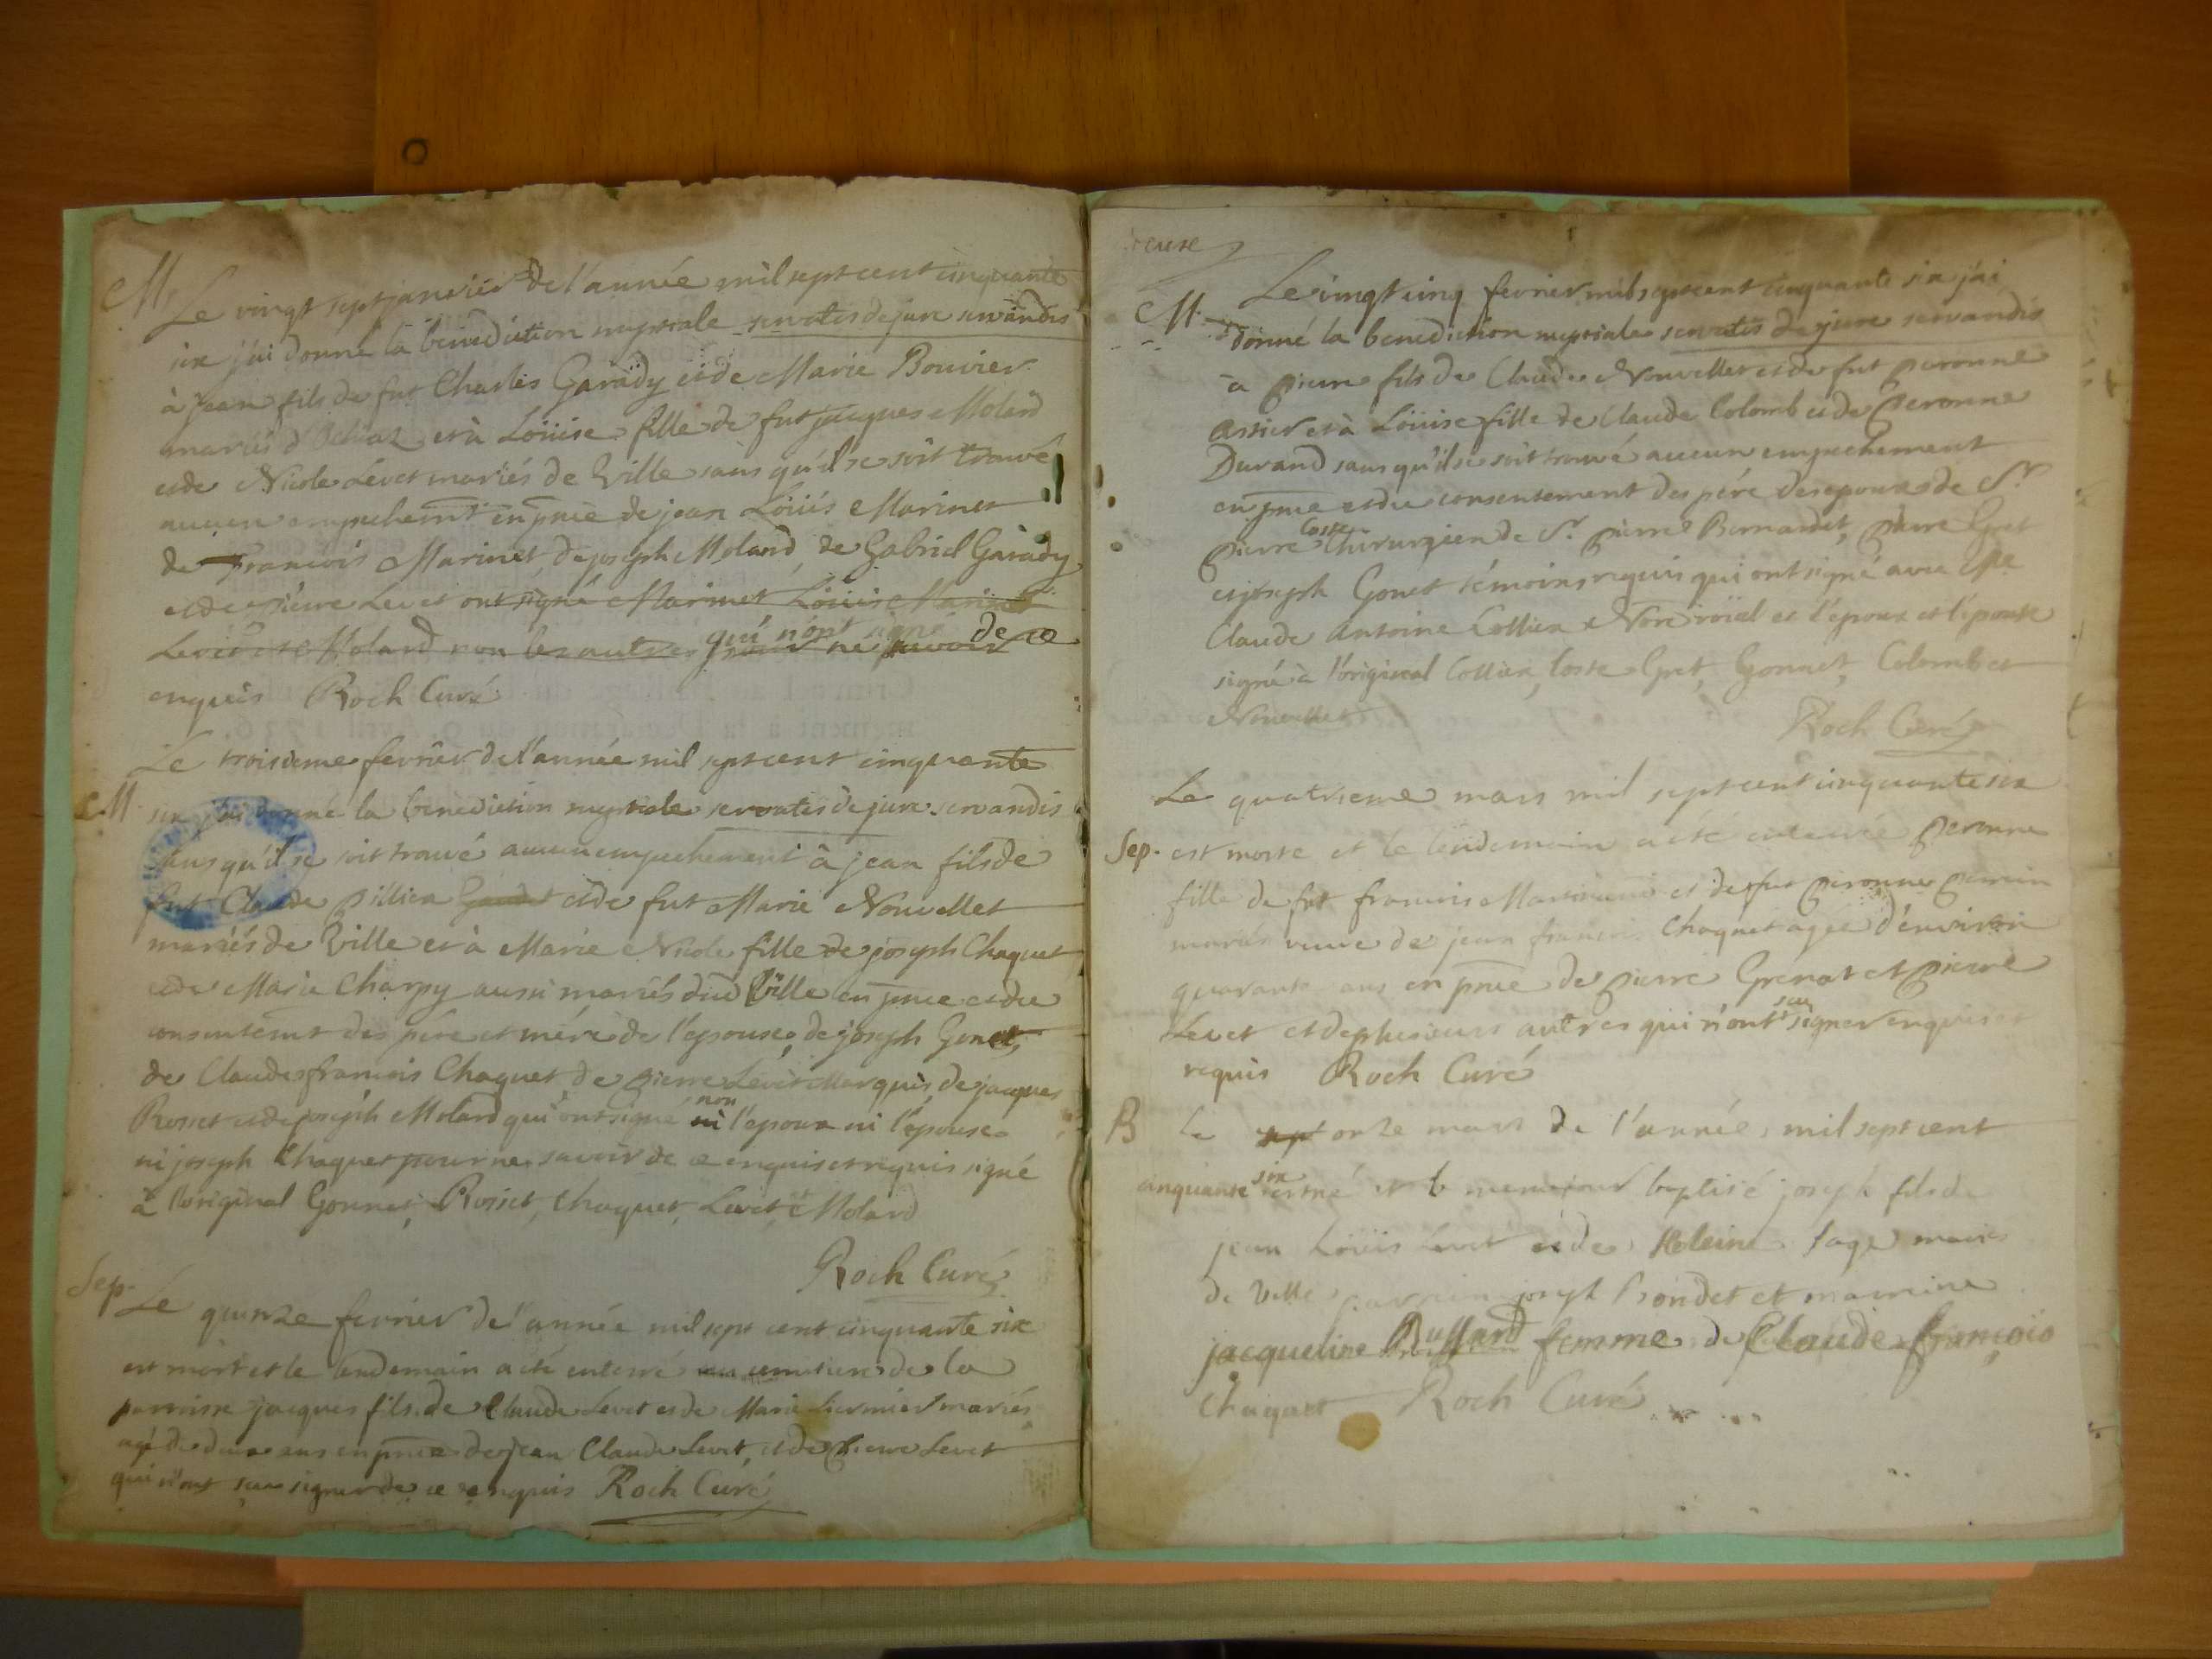 M.
Le vingt sept janvier de l'année mil sept cent cinquante
six j'ai donné la benediction nuptiale servatis de jure servandis
à jean fils de fut Charles Garady et de Marie Bouvier
mariés d' et à Loüise fille de fut jacques Molard
et de Nicole Levet mariés de Ville sans qu'il se soit trouvé
aucun empechemt en pnce de jean Loüis Marinet
de François Marinet, de joseph Moland, de Gabriel Garady
et de Pierre Levet ont signé Marinet Loüis Marinet
Levet et Molard non les autres qui n'ont signé pour ne sçavoir de ce
enquis Roch Curé
Le troisieme fevrier de l'année mil sept cent cinquante
M. six j'ai donné la benediction nuptiale servatis de jure servandis
sans qu'il se soit trouvé aucun empechement à jean fils de
fut Claude Pillion et de fut Marie Nouvellet
mariés de Ville et à Marie Nicole fille de joseph Chaquet
et de Marie Charpy aussi mariés dud Ville en pnce et du
consentemt des père et mére de l'epouse, de joseph Gonet,
de Claude françois Chaquet, de Pierre Levet Marquis, de jacques
Rosset et de joseph Molard qui ont signé non ni l'epoux ni l'épouse
ni joseph Chaquet pour ne savoir de ce enquis et requis signé
à l'original Gonnet, Rosset, Chaquet, Levet, et Molard
Roch Curé
Sep. Le quinze fevrier de l'année mil sept cent cinquante six
est mort et le lendemain a été enterré au cemitiere de la
parroisse jacques fils de Claude Levet et de Marie mariés
agé de deux ans en pnce de jean Claude Levet, et de Pierre Levet
qui n'ont sçeu signer de ce enquis Roch Curé
Le vingt cinq fevrier mil sept cent cinquante six j'ai
M. donné la benediction nuptiale servatis de jure servandis
à Pierre fils de Claude Nouvellet et de fut Peronne
Assier et à Loüise fille de Claude Colomb et de Peronne
Durand sans qu'il se soit trouvé aucun empechement
en pnce et du consentement des pére des epoux de Sr.
Pierre Coste Chirurgien de Sr. Pierre Bernardet, Pierre Gret
et joseph Gonet témoins requis qui ont signé avec Me
Claude Antoine Collier Nore roïal et l'epoux et l'épouse
signé à l'original Collier, Coste Gret, Gonnet, Colomb et
Nouvellet
Roch Curé
Le quatrieme mars mil sept cent cinquante six
Sep. est morte et le lendemain a été enterrée Peronne
fille de fut francois et de fut Peronne
mariés veuve de jean francois Chaquet agée d'environ
quarante ans en pnce de Pierre Grenat et Pierre
Levet et de plusieurs autres qui n'ont sceu signer enquis et
requis Roch Curé
B Le sept onze mars de l'année mil sept cent
cinquante six est né et le meme jour baptisé joseph fils de
jean Loüis Levet et de Heleine Sage mariés
de Ville parrein joseph Bondet et marreine
jacqueline Ruffard femme de Claude françois
Chaquet Roch Curé